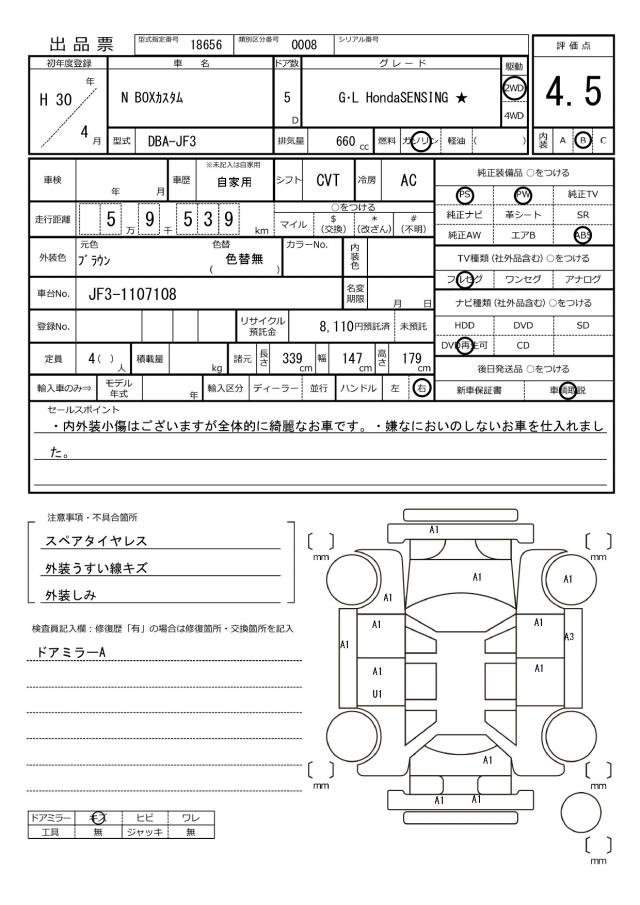 出品票 型式指定番号 18656 類別区分番号 0008 シリアル番号
評価点
4.5
初年度登録 車名 ドア数 グレード 駆動
H 30 年 4 月
N BOXカスタム 5 D G・L HondaSENSING ★ 2WD
4WD
型式 DBA-JF3 排気量 660 cc 燃料 ガソリン 軽油 ( )
内装 A B C
車検 年 月 車歴 ※未記入は自家用 自家用 シフト CVT 冷房 AC
純正装備品 ○をつける
PS PW 純正TV
純正ナビ 革シート SR
純正AW エアB ABS
走行距離 5 万 9 千 5 3 9 km ○をつける
マイル $ (交換) * (改ざん) # (不明)
外装色 元色 ブラウン 色替 ( 色替無 ) カラーNo. 内装色
TV種類 (社外品含む) ○をつける
フルセグ ワンセグ アナログ
車台No. JF3-1107108 名変期限 月 日
ナビ種類 (社外品含む) ○をつける
HDD DVD SD
DVD再生可 CD
登録No. リサイクル預託金 8,110円預託済 未預託
定員 4 ( ) 人 積載量 kg 諸元 長さ 339 cm 幅 147 cm 高さ 179 cm
後日発送品 ○をつける
新車保証書 車輌取説
輸入車のみ⇒ モデル年式 年 輸入区分 ディーラー 並行 ハンドル 左 右
セールスポイント
・内外装小傷はございますが全体的に綺麗なお車です。・嫌なにおいのしないお車を仕入れまし
た。
注意事項・不具合箇所
スペアタイヤレス
外装うすい線キズ
外装しみ
検査員記入欄：修復歴「有」の場合は修復箇所・交換箇所を記入
ドアミラーA
ドアミラー キズ ヒビ ワレ
工具 無 ジャッキ 無
A1
mm mm
A1
A1 A1
A1 A1 A1 A3
A1 A1
U1
A1
mm mm
A1 A1
mm